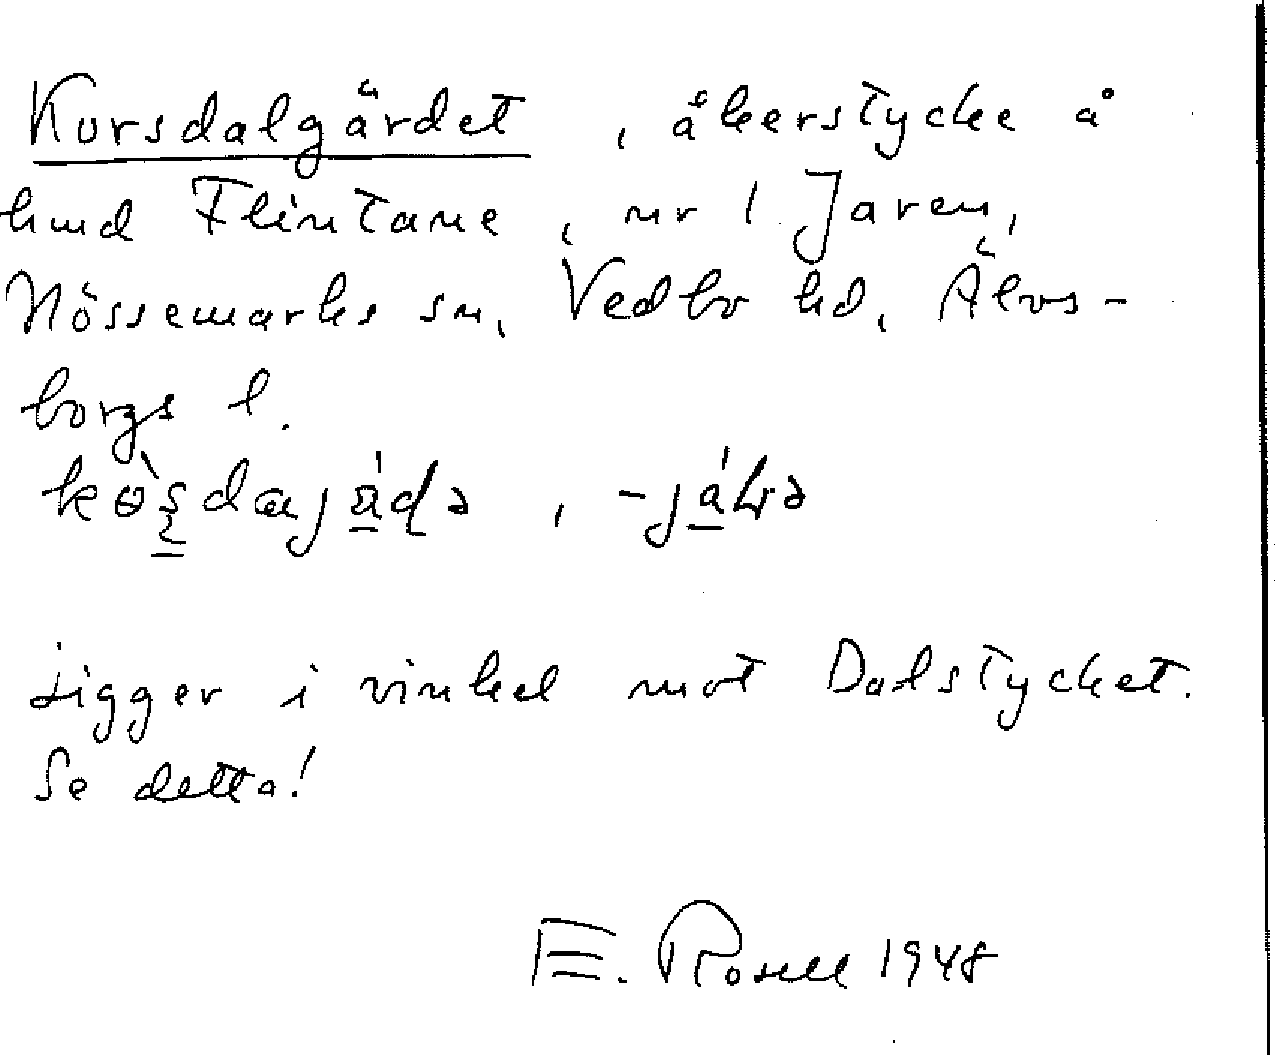 Korsdalgärdet, åkerstycke å
hmd Flintane, nr 1 Jaren,
Nössemarks sn, Vedbo hd, Älvs-
borgs l.
Ligger i vinkel mot Dalstycket.
Se detta!
E. Rosell 1948